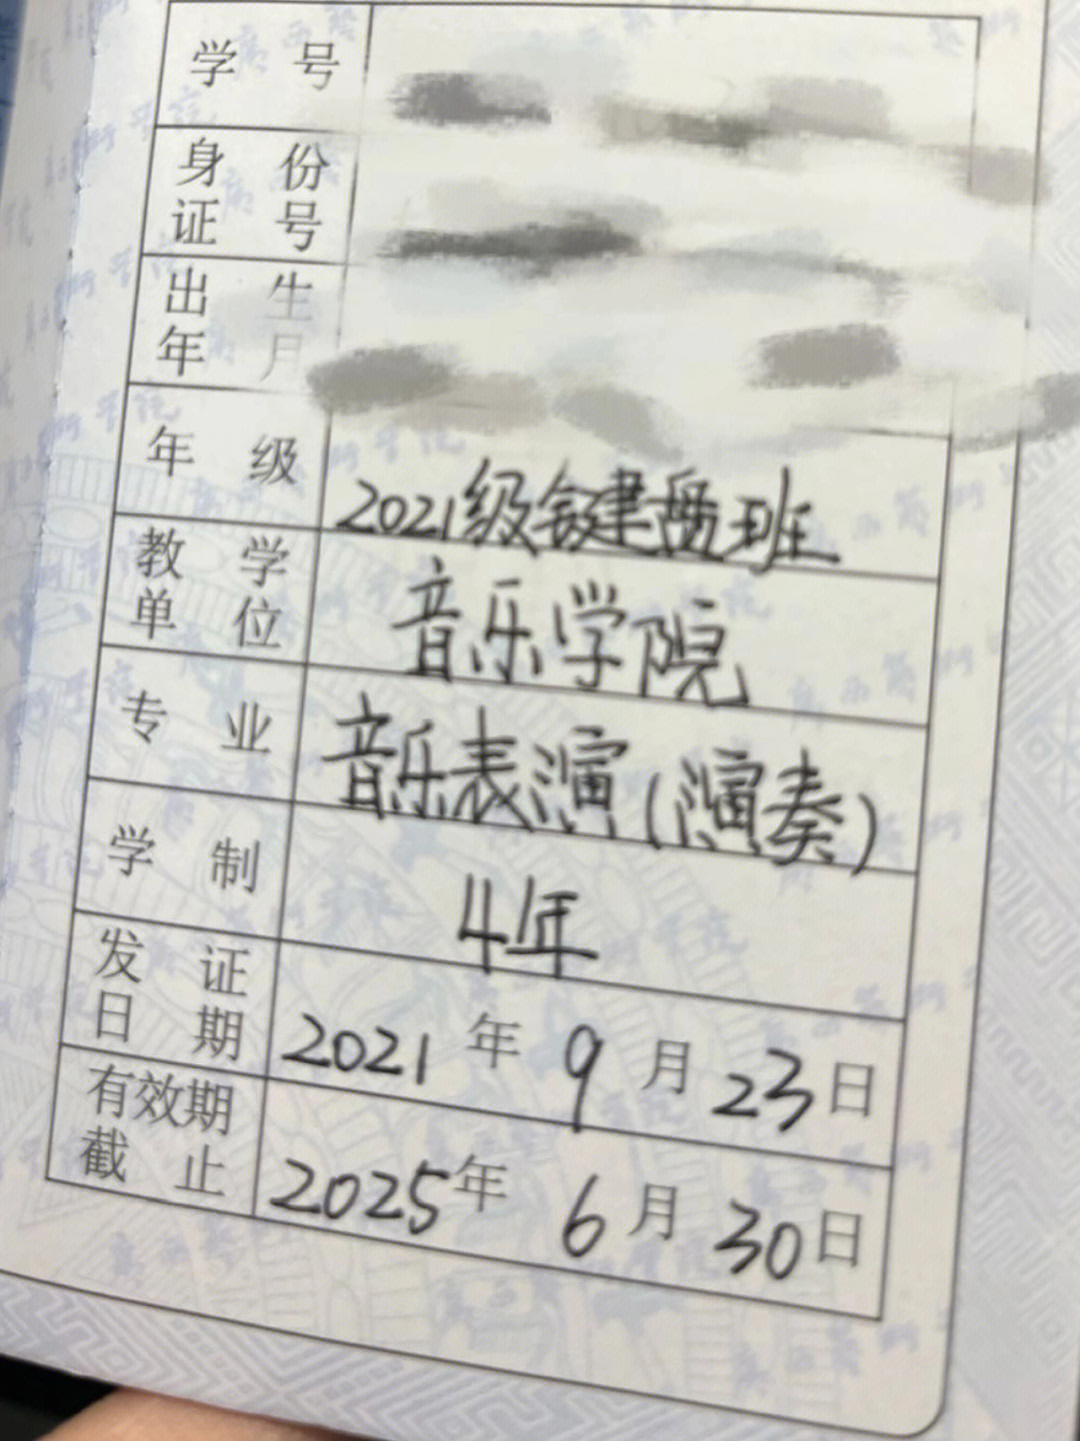 学 号
身 份
证 号
出 生
年 月
年 级 2021级键盘班
教 学
单 位 音乐学院
专 业 音乐表演(演奏)
学 制 4年
发 证
日 期 2021 年 9 月 23 日
有效期
截 止 2025 年 6 月 30 日